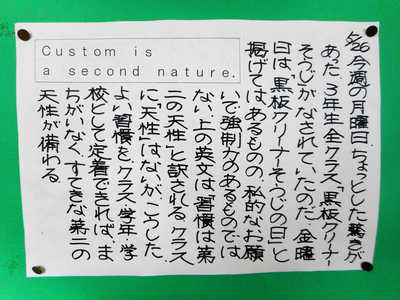 Custom is
a second nature.
5/26 今週の月曜日、ちょっとした驚きが
あった。3年生全クラス「黒板クリーナー
そうじ」がなされていたのだ。金曜
日は、「黒板クリーナーそうじの日」と
掲げてはあるものの、私的なお願
いで強制力のあるものでは
ない。上の英文は「習慣は第
二の天性」と訳される。クラス
に「天性」はないが、こうした
よい習慣を、クラス・学年・学
校として定着できれば、ま
ちがいなく、すてきな第二の
天性が備わる。